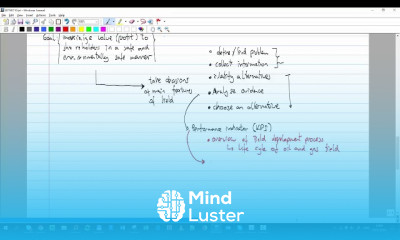 Goal maximize value (profit) to
in a safe and
safe manner
take decisions
on main features
of field
• define/find problem
• collect information
• alternatives
• Analyze evidence
• choose an alternative
Performance indicator (KPI)
• overview of field development process
life cycle of oil and gas field
Mind
Luster